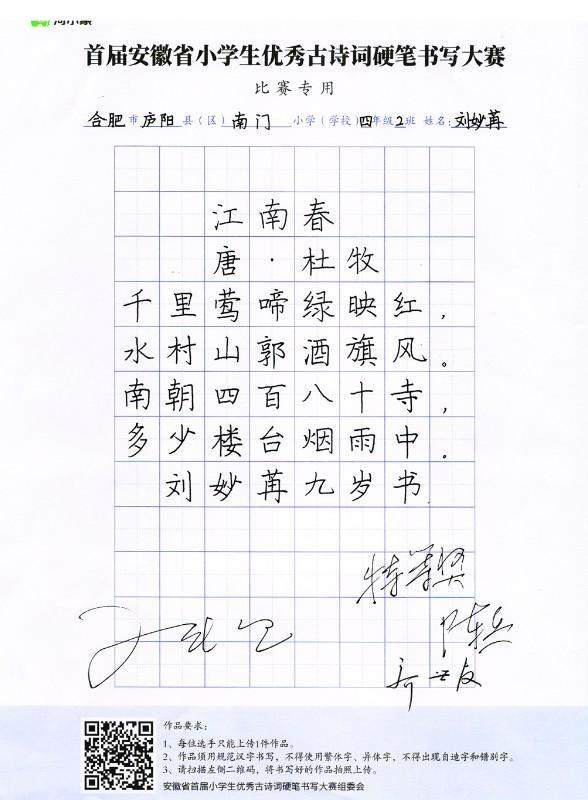 首届安徽省小学生优秀古诗词硬笔书写大赛
比赛专用
合肥市庐阳县(区)南门小学(学校)四年级2班 姓名:刘妙苒
江南春
唐·杜牧
千里莺啼绿映红,
水村山郭酒旗风。
南朝四百八十寺,
多少楼台烟雨中。
刘妙苒九岁书
特等奖
作品要求:
1、每位选手只能上传1件作品。
2、作品须用规范汉字书写,不得使用繁体字、异体字,不得出现自造字和错别字。
3、请扫描左侧二维码,将书写好的作品拍照上传。
安徽省首届小学生优秀古诗词硬笔书写大赛组委会